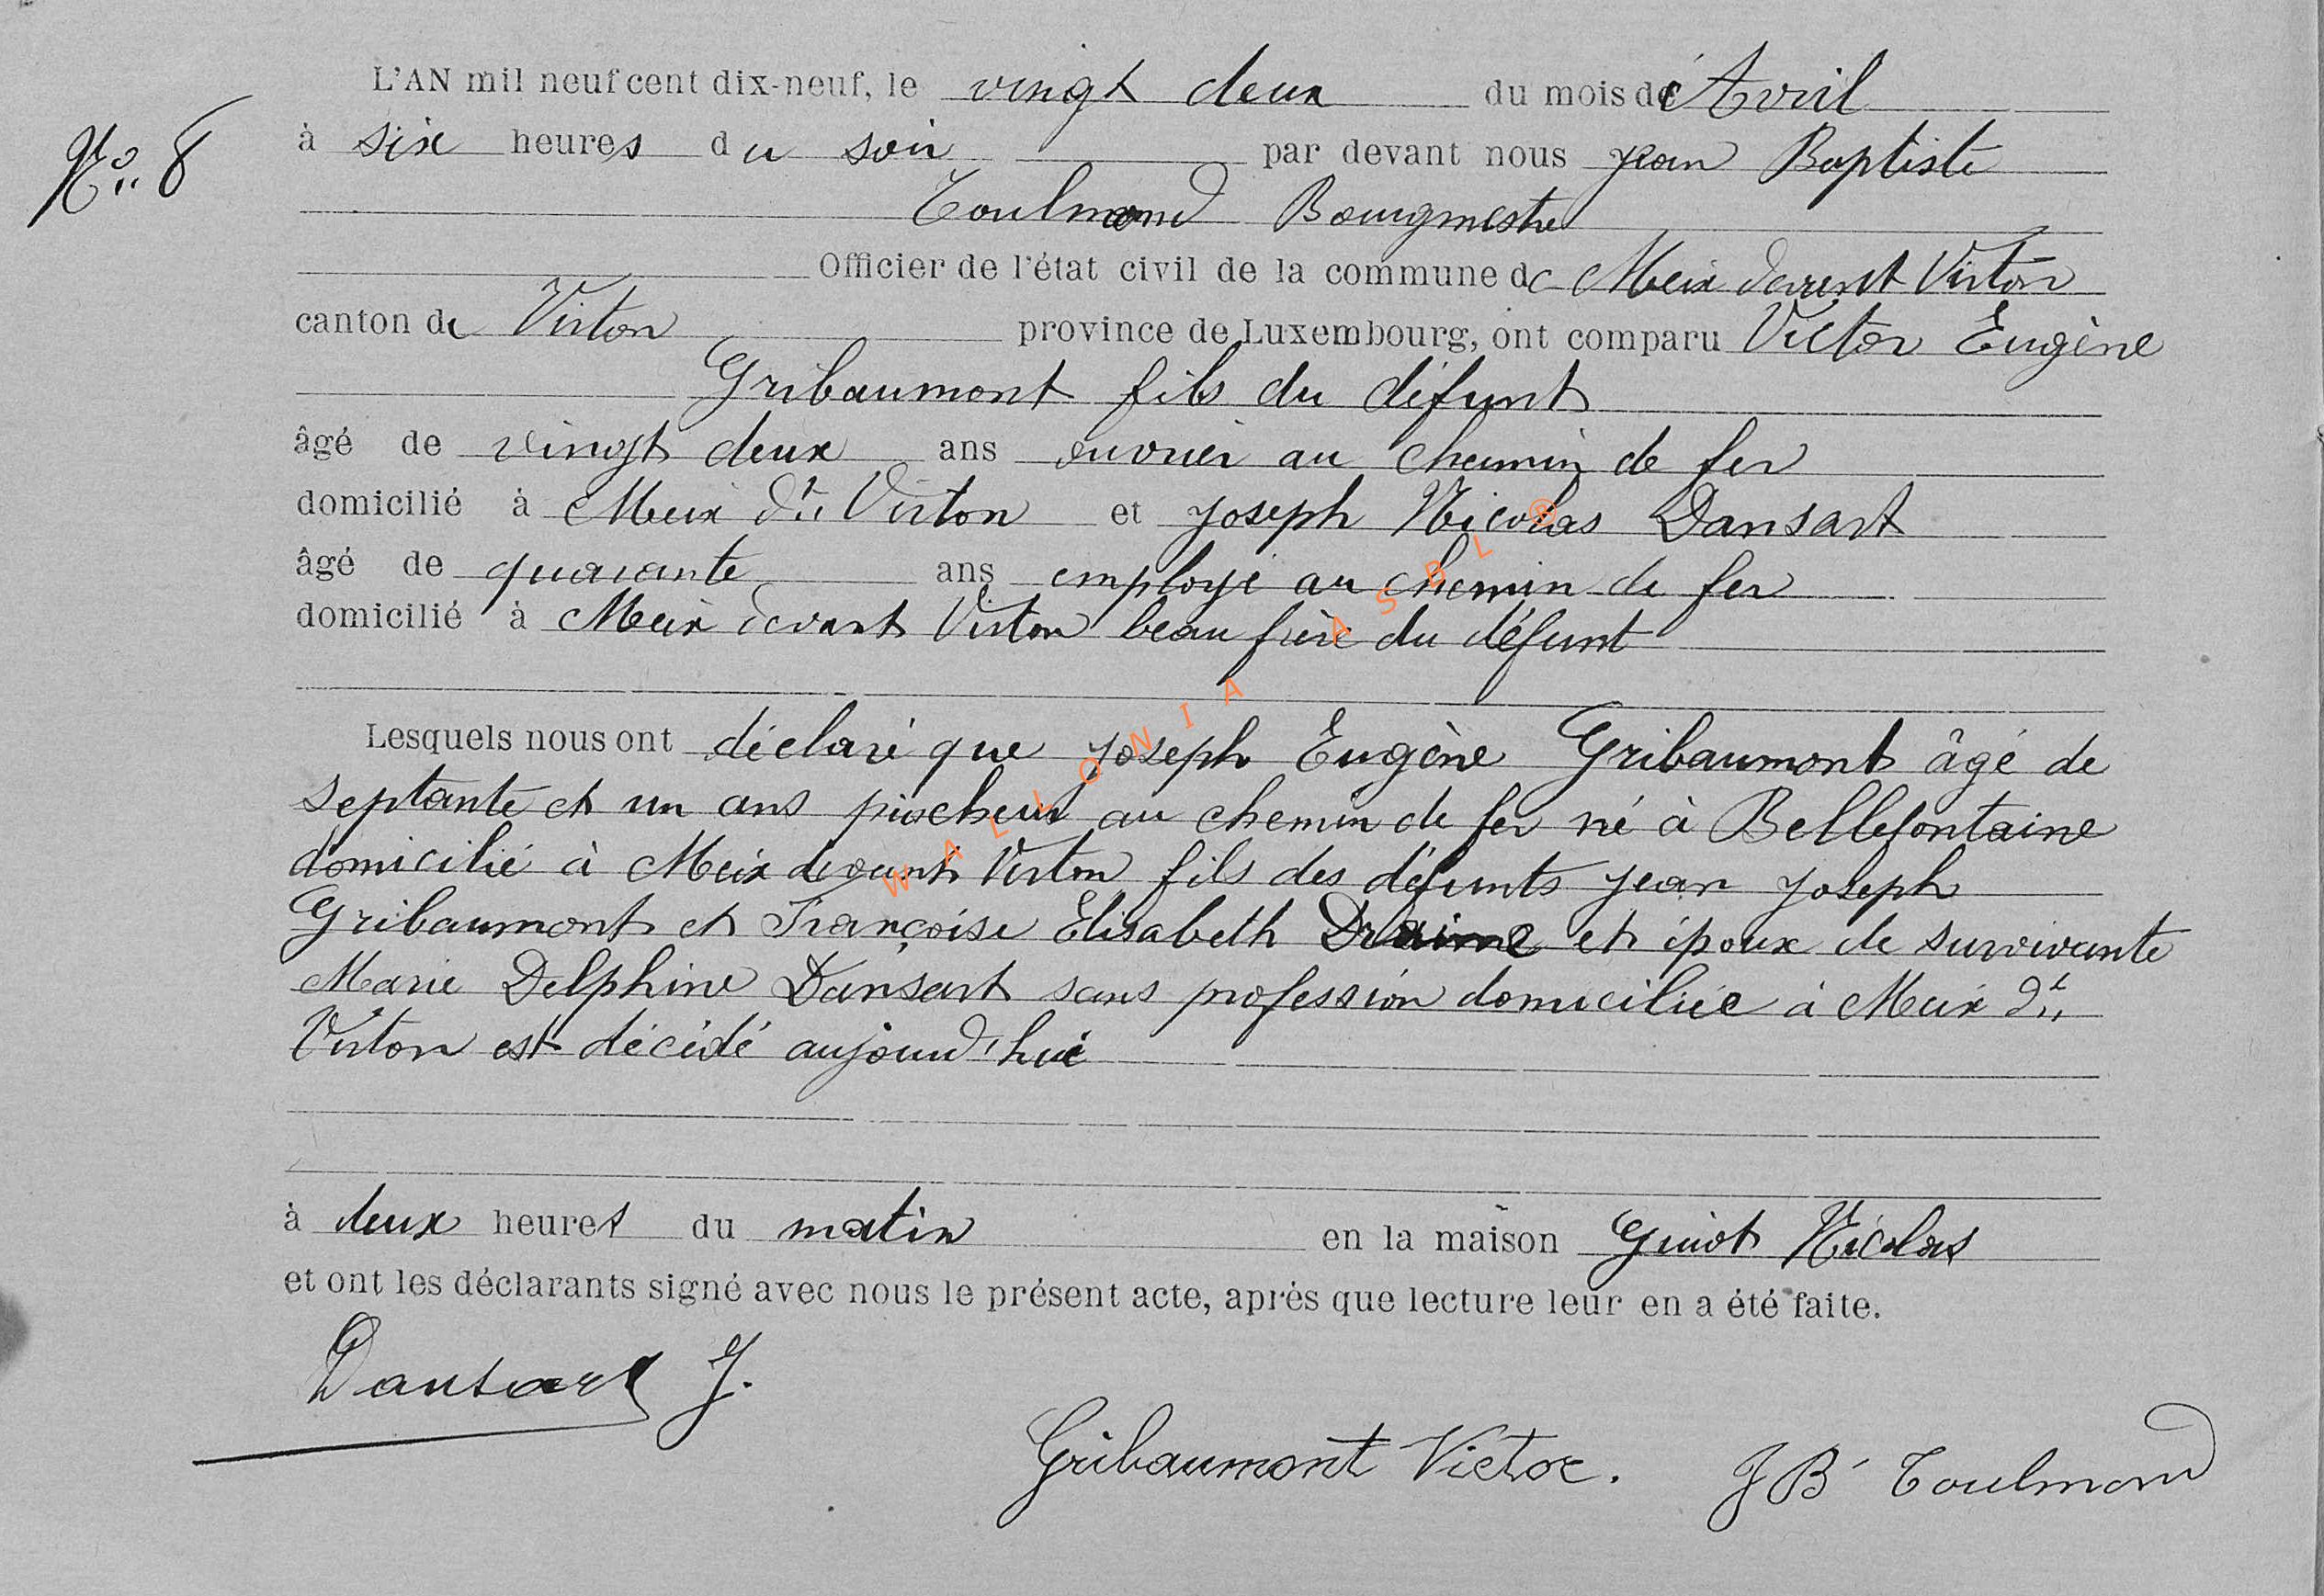 L'AN mil neuf cent dix-neuf, le vingt deux du mois d'Avril
N° 8
à six heures du soir par devant nous Jean Baptiste
Toulmond Bourgmestre
Officier de l'état civil de la commune de Meix devant Virton
canton de Virton province de Luxembourg, ont comparu Victor Eugène
Gribaumont fils du défunt
âgé de vingt deux ans ouvrier au chemin de fer
domicilié à Meix dt Virton et Joseph Nicolas Dansart
âgé de quarante ans employé au chemin de fer
domicilié à Meix devant Virton beau frère du défunt
Lesquels nous ont déclaré que Joseph Eugène Gribaumont âgé de
septante et un ans piocheur au chemin de fer né à Bellefontaine
domicilié à Meix devant Virton fils des défunts Jean Joseph
Gribaumont et Françoise Elisabeth Draime et époux de survivante
Marie Delphine Dansart sans profession domiciliée à Meix dt
Virton est décédé aujourd'hui
à deux heures du matin en la maison Guiot Nicolas
et ont les déclarants signé avec nous le présent acte, après que lecture leur en a été faite.
Dansart J.
Gribaumont Victor.
JB Toulmond
WALLONIA ASBL ®